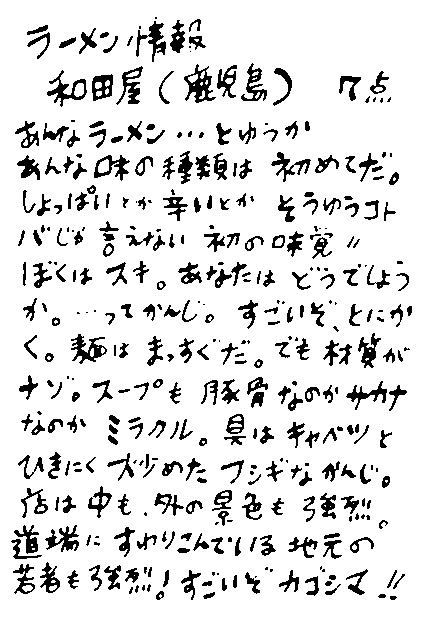 ラーメン情報
和田屋(鹿児島) 7点
あんなラーメン…とゆうか
あんな味の種類は初めてだ。
しょっぱいとか辛いとかそうゆうコト
バじゃ言えない初の味覚!!
ぼくはスキ。あなたはどうでしょう
か。…ってかんじ。すごいぞ、とにか
く。麺はまっすぐだ。でも材質が
ナゾ。スープも豚骨なのかサカナ
なのかミラクル。具はキャベツと
ひきにく炒めたフシギなかんじ。
店は中も、外の景色も強烈。
道端にすわりこんでいる地元の
若者も強烈!すごいぞカゴシマ!!